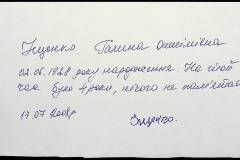 Іщенко Галина Онисімівна
02.06.1928 року народження. На той
час було 4 роки, нічого не пам'ятаю
17.07.2008р.